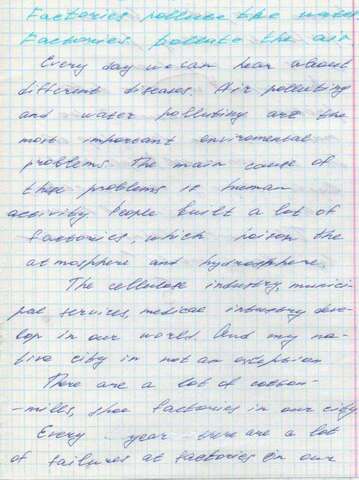 Factories pollute the water
Factories pollute the air
Every day we can hear about
different diseases. Air polluting
and water polluting are the
most important enviromental
problems. The main cause of
these problems is human
activity. People built a lot of
factories, which poison the
atmosphere and hydrosphere.
The cellulose industry, munici-
pal services, medical industry deve-
lop in our world. And my na-
tive city in not an exception
There are a lot of cotton-
-mills, shoe factories in our city
Every year there are a lot
of failures at factories in our